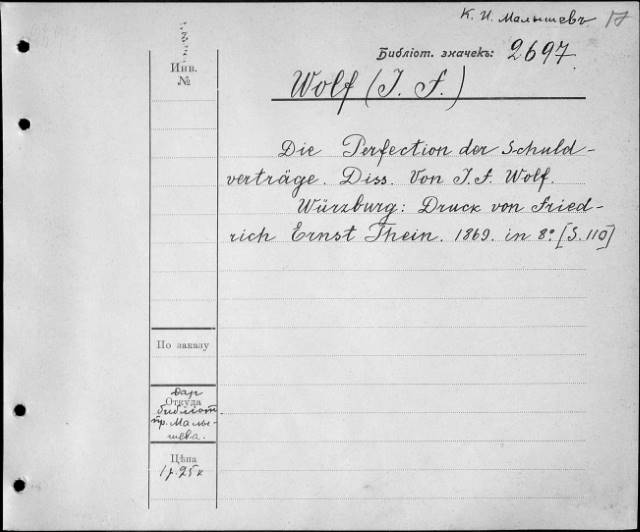 К. И. Малышевъ 17
Библіот. значекъ: 2697.
Инв.
№
Wolf (J. F.)
Die Perfection der Schuld-
verträge. Diss. Von J. F. Wolf.
Würzburg: Druck von Fried-
rich Ernst Thein. 1869. in 8º. [S. 110]
По заказу
Откуда
Дар
библіот.
пр. Малы-
шева.
Цѣна
1 р. 25 к